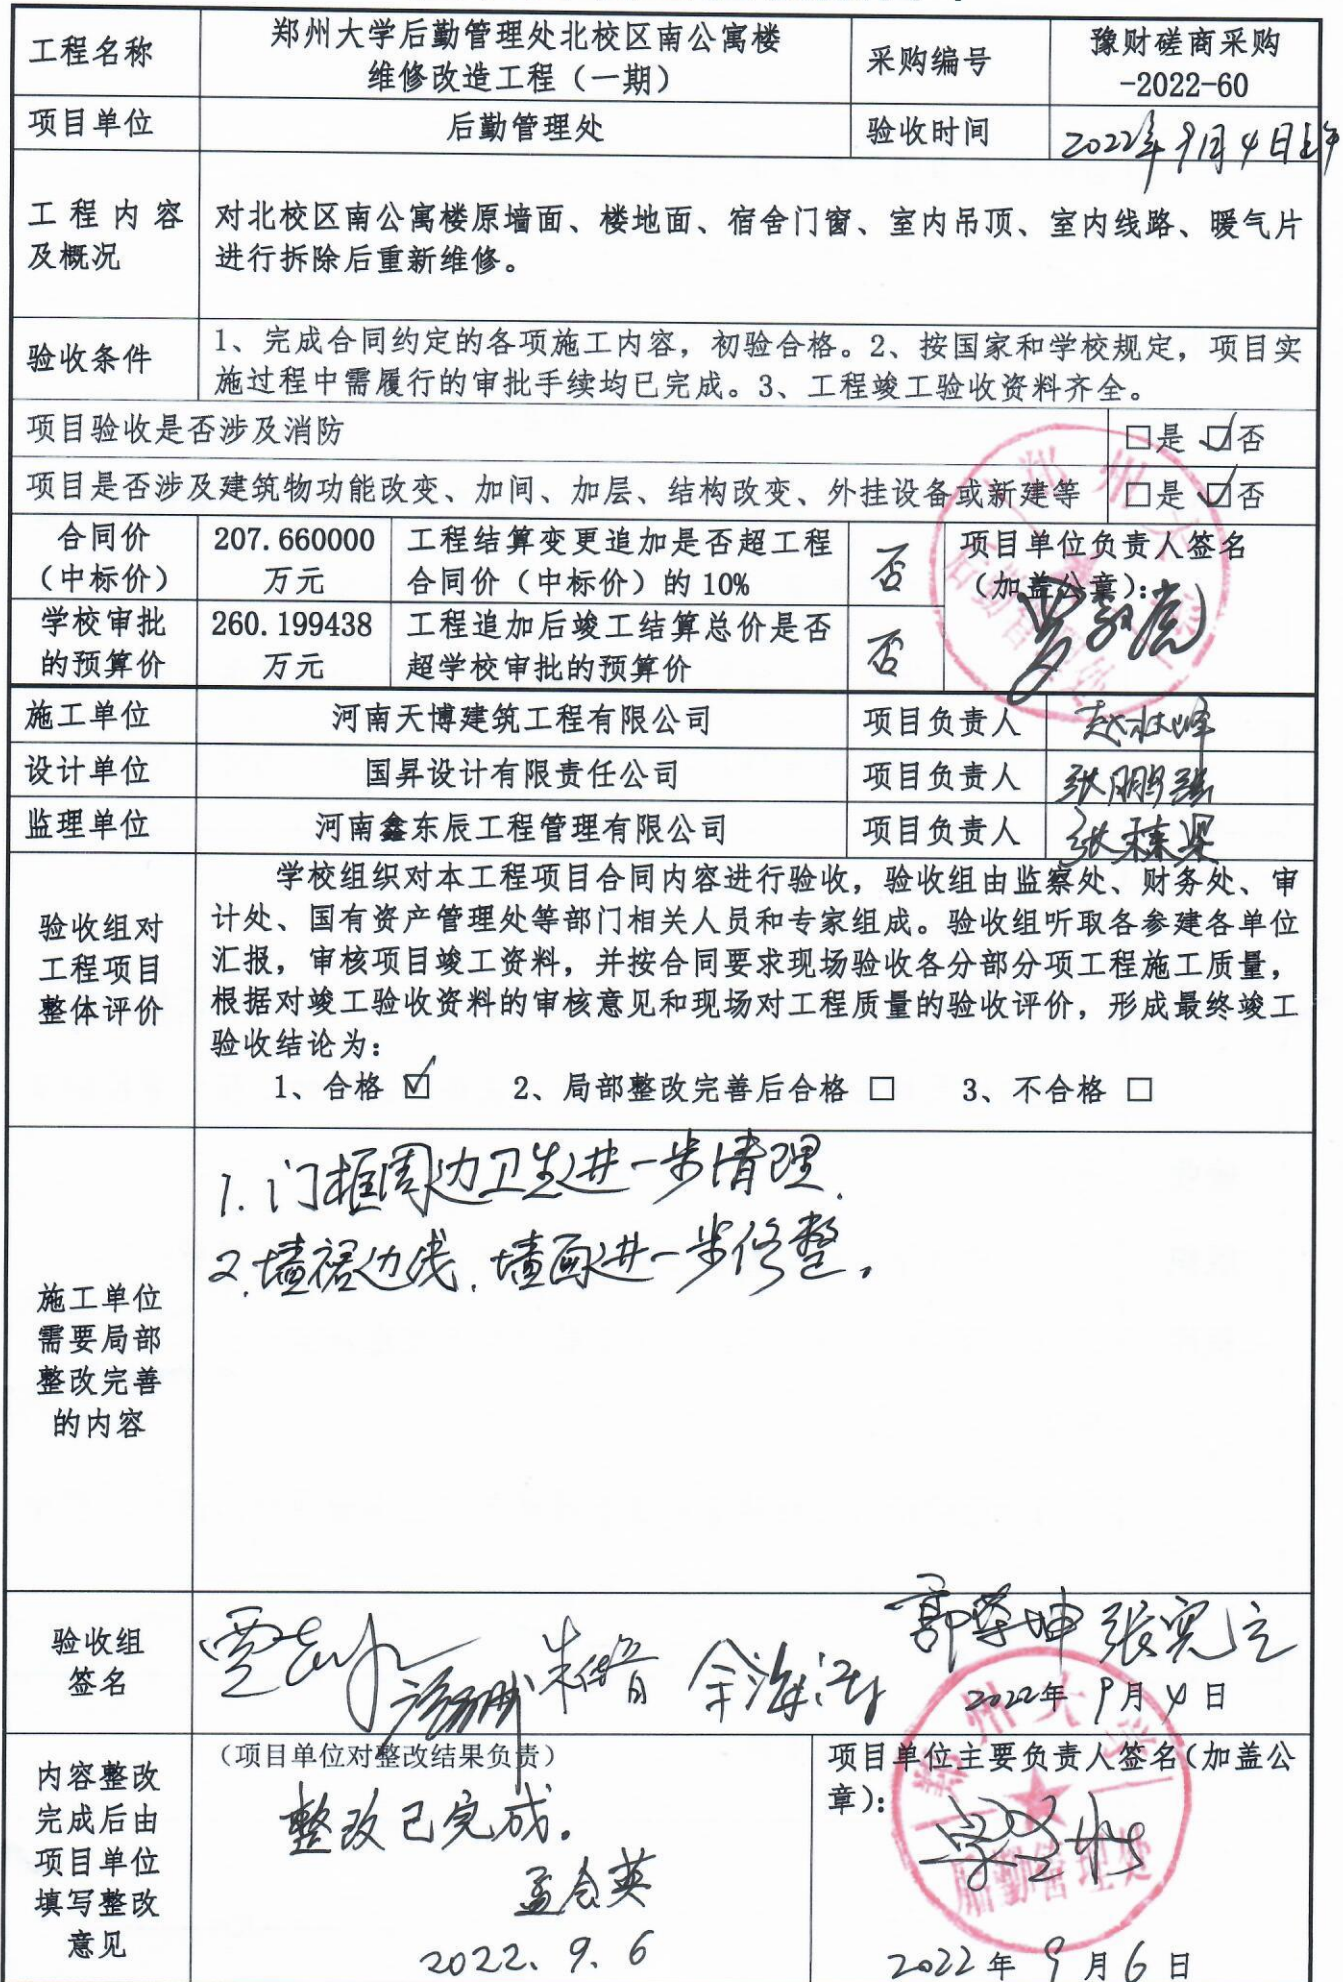 工程名称
郑州大学后勤管理处北校区南公寓楼
维修改造工程（一期）
采购编号
豫财磋商采购
-2022-60
项目单位
后勤管理处
验收时间
2022年9月4日上午
工程内容
及概况
对北校区南公寓楼原墙面、楼地面、宿舍门窗、室内吊顶、室内线路、暖气片
进行拆除后重新维修。
验收条件
1、完成合同约定的各项施工内容，初验合格。2、按国家和学校规定，项目实
施过程中需履行的审批手续均已完成。3、工程竣工验收资料齐全。
项目验收是否涉及消防
□是 ☑否
项目是否涉及建筑物功能改变、加间、加层、结构改变、外挂设备或新建等
□是 ☑否
合同价
（中标价）
207.660000
万元
工程结算变更追加是否超工程
合同价（中标价）的10%
否
项目单位负责人签名
（加盖公章）：
学校审批
的预算价
260.199438
万元
工程追加后竣工结算总价是否
超学校审批的预算价
否
施工单位
河南天博建筑工程有限公司
项目负责人
设计单位
国昇设计有限责任公司
项目负责人
张鹏强
监理单位
河南鑫东辰工程管理有限公司
项目负责人
验收组对
工程项目
整体评价
学校组织对本工程项目合同内容进行验收，验收组由监察处、财务处、审
计处、国有资产管理处等部门相关人员和专家组成。验收组听取各参建各单位
汇报，审核项目竣工资料，并按合同要求现场验收各分部分项工程施工质量，
根据对竣工验收资料的审核意见和现场对工程质量的验收评价，形成最终竣工
验收结论为：
1、合格 ☑ 2、局部整改完善后合格 □ 3、不合格 □
施工单位
需要局部
整改完善
的内容
1. 门框周边卫生进一步清理.
2. 墙裙边线、墙面进一步修整。
验收组
签名
2022年9月4日
内容整改
完成后由
项目单位
填写整改
意见
（项目单位对整改结果负责）
整改已完成。
孟会英
2022、9、6
项目单位主要负责人签名（加盖公
章）：
郑州大学
后勤管理处
2022年9月6日